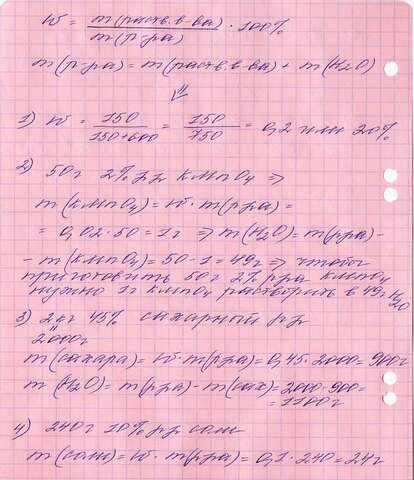 w = m(раств. в-ва) / m(р-ра) · 100%
m(р-ра) = m(раств. в-ва) + m(H2O)
⇓
1) w = 150 / 150+600 = 150 / 750 = 0,2 или 20%
2) 50г 2% р-р KMnO4 ⇒
m(KMnO4) = w · m(р-ра) =
= 0,02 · 50 = 1г ⇒ m(H2O) = m(р-ра) -
- m(KMnO4) = 50 - 1 = 49г ⇒ чтобы
приготовить 50г 2% р-ра KMnO4
нужно 1г KMnO4 растворить в 49г H2O
3) 2кг 45% сахарный р-р
2000г
m(сахара) = w · m(р-ра) = 0,45 · 2000 = 900г
m(H2O) = m(р-ра) - m(сах) = 2000 - 900 =
= 1100г
4) 240г 10% р-р соли
m(соли) = w · m(р-ра) = 0,1 · 240 = 24г